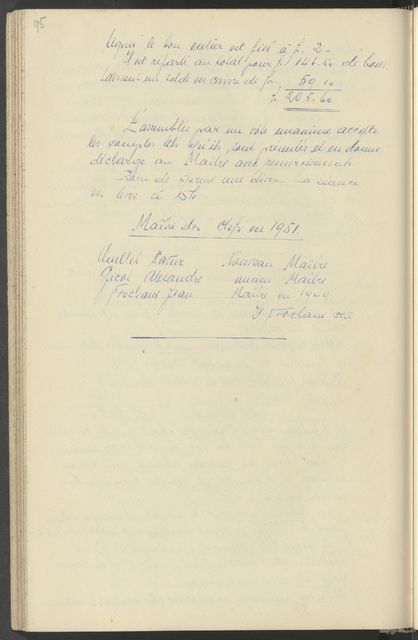 95
le bon entier est fixé à f. 2.-
Il est réparti au total pour f. 146.50 de bons.
Laissant un solde en caisse de fr. 59.10
f. 205.60
L'assemblée par un vote unanime accepte
les comptes tels qu'ils sont présentés et en donne
décharge au Maître avec remerciements.
Rien de aux divers. La séance
est levée à 15 h.
Maître des Clefs en 1951.
Nouveau Maître
Alexandre ancien Maître
Prochaux Jean Maître en 1949